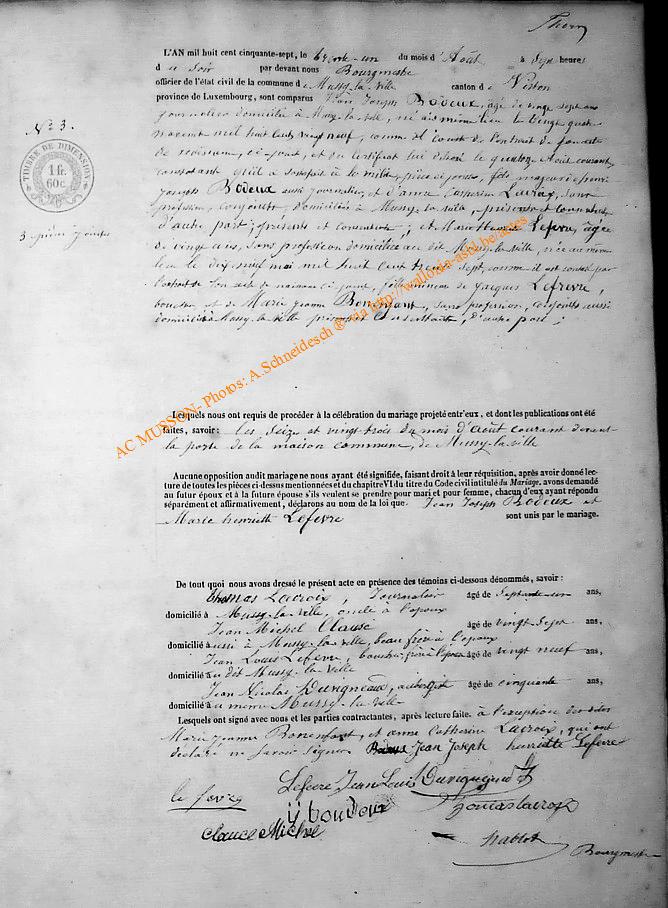 L'AN mil huit cent cinquante-sept, le trente-un du mois d'Août à Sept heures
d u Soir par devant nous Bourgmestre
officier de l'état civil de la commune de Mussy-la-Ville canton de Virton
province de Luxembourg, sont comparus Jean Joseph Bodeux, âgé de vingt sept ans
journalier domicilié à Mussy-la-ville, né au même lieu le vingt quatre
mil huit cent vingt neuf, comme il conste de
ci-joint, et du certificat lui délivré le quinze Août courant
constatant qu'il a satisfait à la milice, fils majeur de
Joseph Bodeux aussi journalier, et d'anne Catherine Lacroix, sans
profession, conjoints, domiciliés à Mussy-la-ville, présents et
d'autre part; présents et consentants; et Marie Lefevre, âgée
de vingt ans, sans profession domiciliée au dit Mussy-la-ville, née au même
lieu le dix neuf mai mil huit cent trente sept, comme il est constaté par
l'extrait de son acte de naissance ci joint, fille mineure de Jacques Lefevre,
et de Marie jeanne Bonenfant, sans profession, conjoints aussi
domiciliés à Mussy-la-ville présents et consentants, d'autre part;
N° 3.
TIMBRE DE DIMENSION
1 fr.
60c.
3 pièces jointes
Lesquels nous ont requis de procéder à la célébration du mariage projeté entr'eux, et dont les publications ont été
faites, savoir: les seize et vingt trois du mois d'août courant devant
la porte de la maison commune, de Mussy-la-ville
Aucune opposition audit mariage ne nous ayant été signifiée, faisant droit à leur réquisition, après avoir donné lec-
ture de toutes les pièces ci-dessus mentionnées et du chapitre VI du titre du Code civil intitulé du Mariage, avons demandé
au futur époux et à la future épouse s'ils veulent se prendre pour mari et pour femme, chacun d'eux ayant répondu
séparément et affirmativement, déclarons au nom de la loi que Jean Joseph Bodeux et
Marie henriette Lefevre sont unis par le mariage.
De tout quoi nous avons dressé le présent acte en présence des témoins ci-dessous dénommés, savoir:
thomas Lacroix, Journalier âgé de Septante-un ans,
domicilié à Mussy-la-ville, oncle à l'époux
Jean Michel Clause âgé de vingt-sept ans,
domicilié aussi à Mussy-la-ville, beau frère à l'époux
Jean Louis Lefevre, boucher, frère à l'épouse âgé de vingt neuf ans,
domicilié au dit Mussy-la-ville
Jean Nicolas Duvigneaud, aubergiste âgé de cinquante ans,
domicilié au même Mussy-la-ville
Lesquels ont signé avec nous et les parties contractantes, après lecture faite. à l'exception des
Marie jeanne Bonenfant, et anne Catherine Lacroix, qui ont
déclaré ne savoir signer Jean Joseph henriette Lefevre
Lefevre Jean Louis Duvigneaud
lefevre y boudoux tomas lacroix
Clauce Michel
hablot Bourgmestre
AC MUSSON- Photos: A.Schneidesch ® via http://walloxia-asbl.be/actes